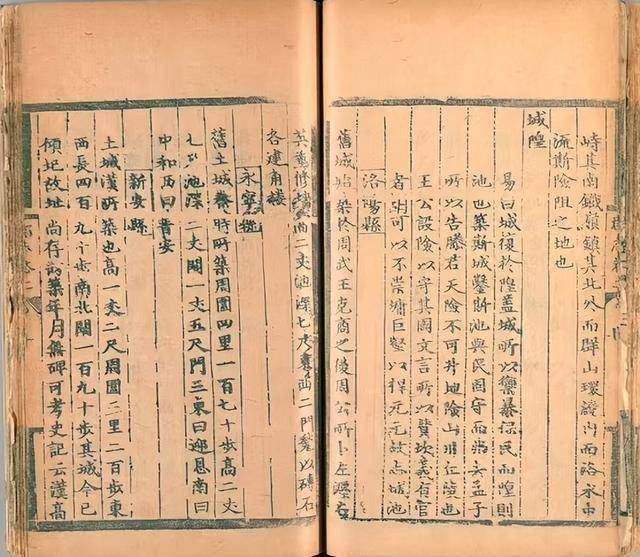 峙其南鐵嶺鎮其北外而群山環遶內而洛水中
流斯險阻之地也
城隍
易曰城復於隍蓋城所以禦暴保民而隍則
池也築斯城鑿斯池與民固守而弗去孟子
所以告滕君天險不可升地險山川丘陵也
王公設險以守其國文言所以贊坎義有官
者胡可以不崇墉巨壑以捍元元故志城池
洛陽縣
舊城始築於周武王克商之後周公所卜左瀍右
二丈池深七尺 二門甃以磚石
各建角樓
永寧縣
舊土城秦時所築周圍四里一百七十步高二丈
七尺池深二丈闊一丈五尺門三東曰迎恩南曰
中和西曰晋安
新安縣
土城漢所築也高一丈二尺周圍三里二百步東
西長四百九十步南北闊一百九十步其城今已
傾圮故址尚存 築年月無碑可考史記云漢高